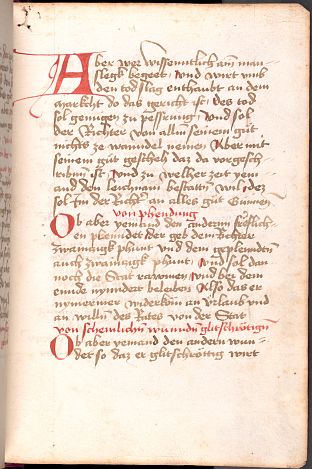 Aber wer wissenntlich ain man
slegk begeet vnd wirt vmb
den todslag enthaubt an dem
markcht do das gericht ist des tod
sol genugen zu pesserung vnd sol
der Richter von allm seinem gut
nichts ze wanndel nemen Aber mit
seinem gut gescheh daz da vorgesch-
ribnn ist Und zu welher zeit yem
and den leichnam bestattn wil dez
sol In der Richter an alles gut Gunnen
von phendung
Ob aber yemand den andernn frolich-
en phenndet der geb dem Richter
zwainczigk phunt vnd dem gephendten
auch zwainczigk phunt Und sol dan
noch die Stat rawmen Und bei dem
ennde nymmdert beleiben Also das er
nymermer widerkom an vrlaub vnd
an willn des Rates von der Stat
von schemlichn wundn glitschrotign
Ob aber yemand den andern wun-
det so daz er glitschröttig wirt